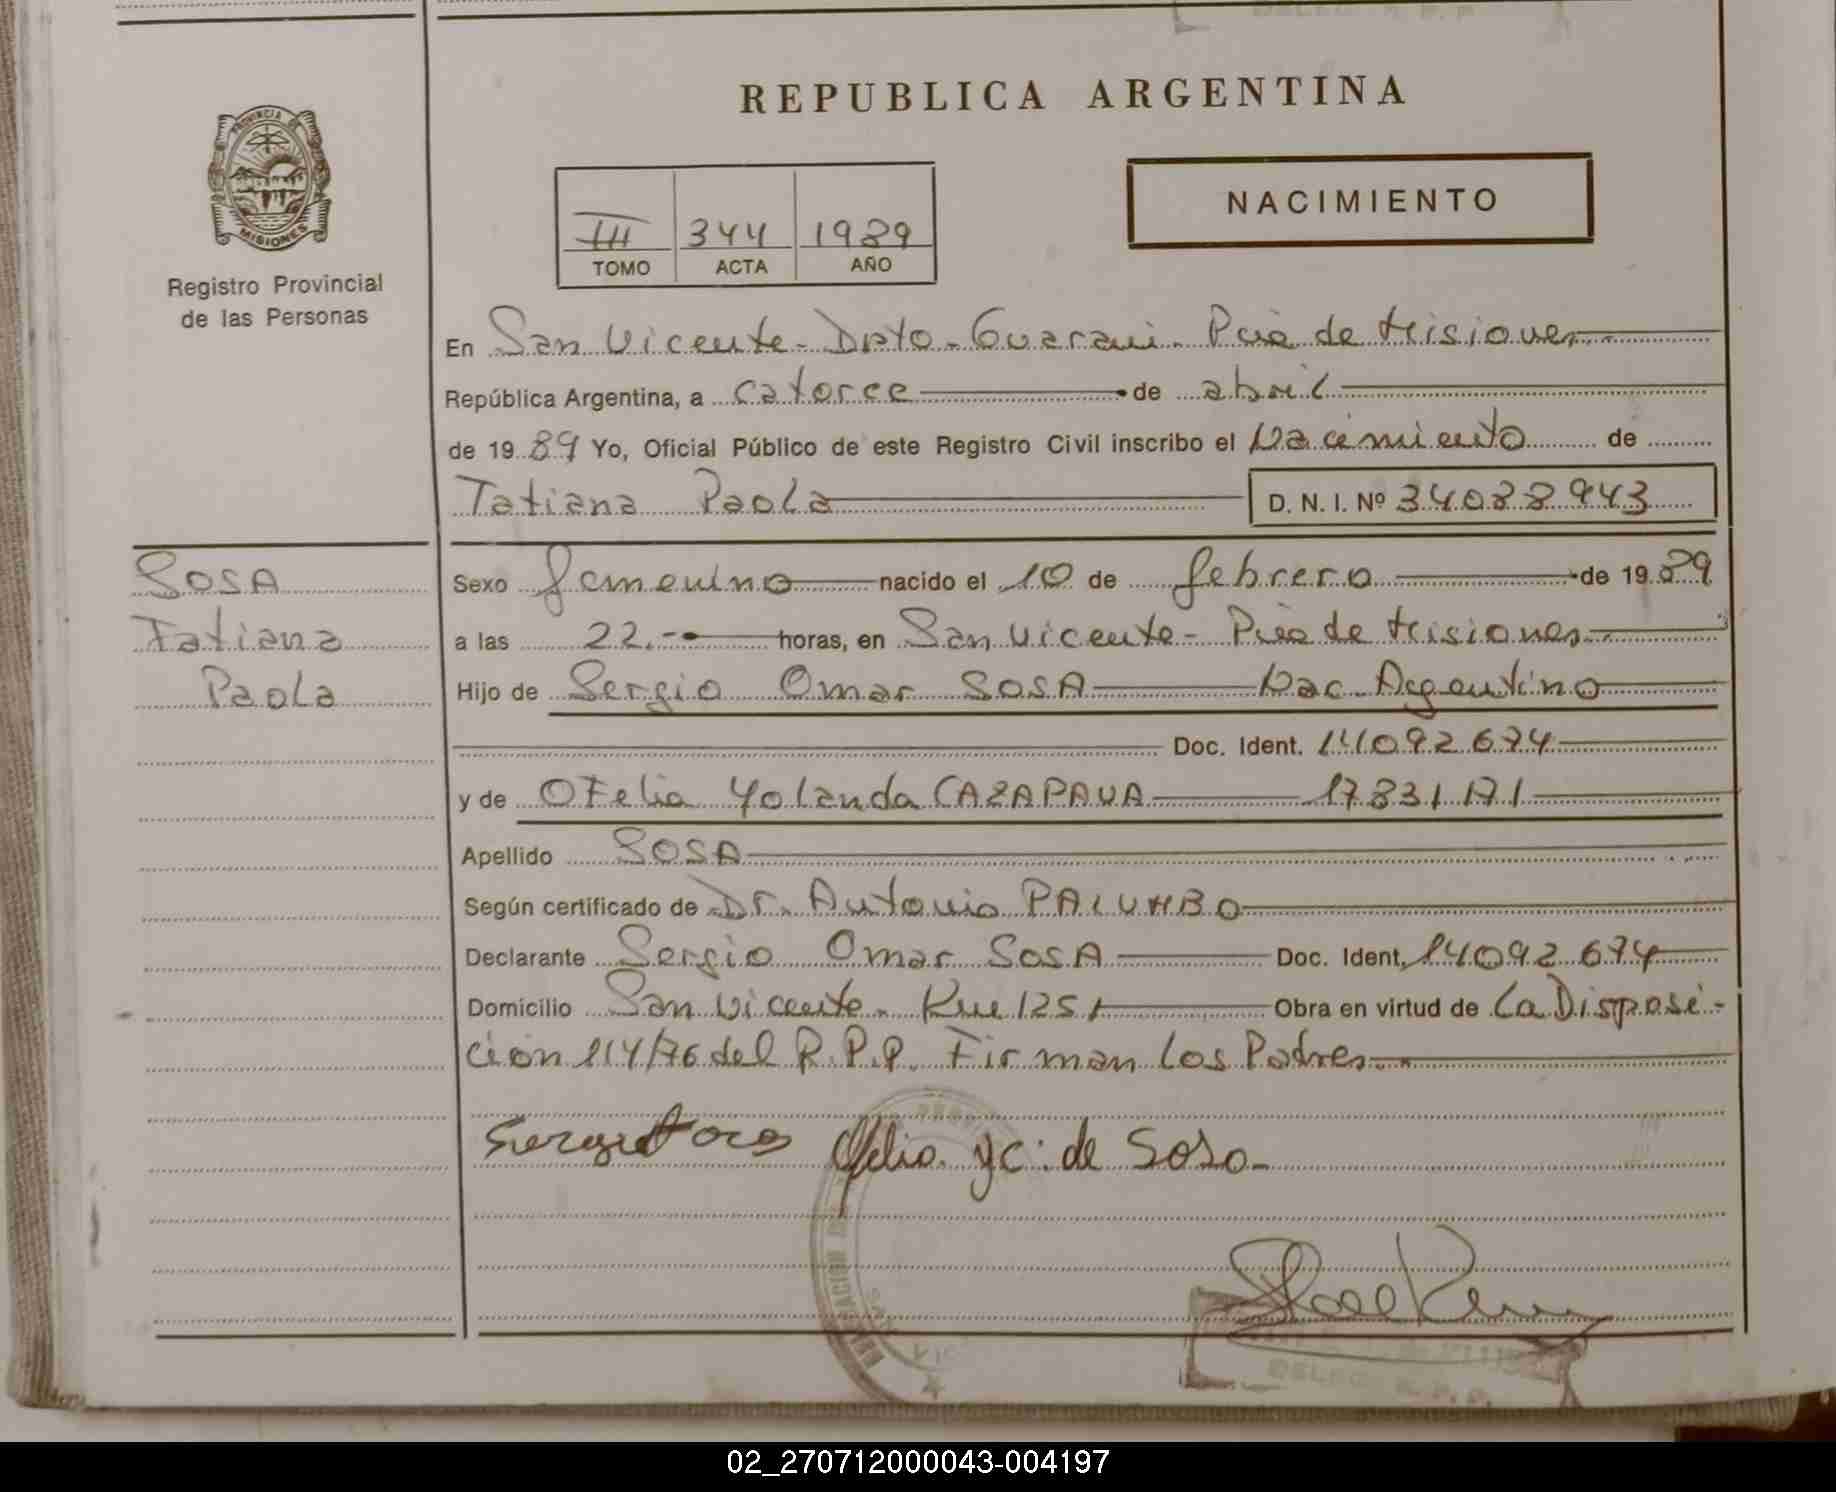 REPUBLICA ARGENTINA
PROVINCIA DE
MISIONES
Registro Provincial
de las Personas
III 344 1989
TOMO ACTA AÑO
NACIMIENTO
En San Vicente - Dpto - Guarani - Pcia de Misiones
República Argentina, a catorce de abril
de 1989 Yo, Oficial Público de este Registro Civil inscribo el Nacimiento de
Tatiana Paola D. N. I. Nº 34088943
SOSA
Tatiana
Paola
Sexo femenino nacido el 10 de febrero de 1989
a las 22.- horas, en San Vicente - Pcia de Misiones
Hijo de Sergio Omar SOSA Nac. Argentino
Doc. Ident. 14092674
y de OFelia Yolanda CAZAPAVA 17831171
Apellido SOSA
Según certificado de Dr. Antonio PALUMBO
Declarante Sergio Omar SOSA Doc. Ident. 14092674
Domicilio San Vicente - Km 1251 Obra en virtud de La Disposi-
ción 114/76 del R.P.P. Firman Los Padres.
Ofelia y C: de Sosa
DELEG. R. P. P.
02_270712000043-004197